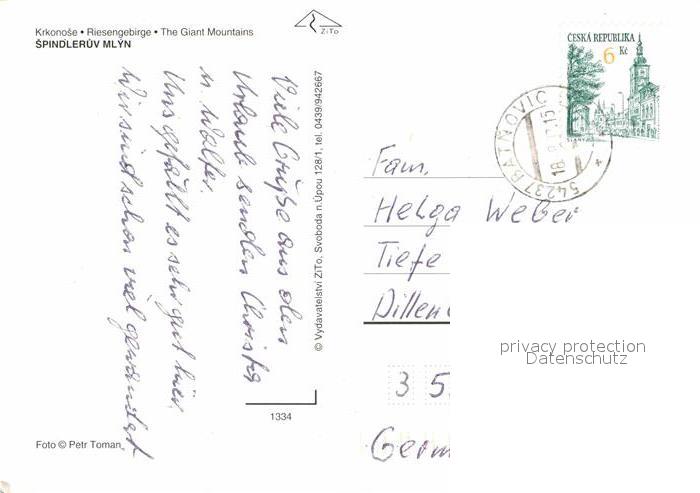 Krkonoše • Riesengebirge • The Giant Mountains
ŠPINDLERŮV MLÝN
ZiTo
ČESKÁ REPUBLIKA
6 Kč
54237 BATŇOVICE
Viele Grüße aus dem
Urlaub senden Christa
u. Walter.
Uns gefällt es sehr gut hier.
Wir sind schon viel gewandert.
© Vydavatelství ZiTo, Svoboda n.Úpou 128/1, tel. 0439/942667
1334
Foto © Petr Toman
Fam.
Helga Weber
Tiefe
Dillen
3 5
Germ
privacy protection
Datenschutz